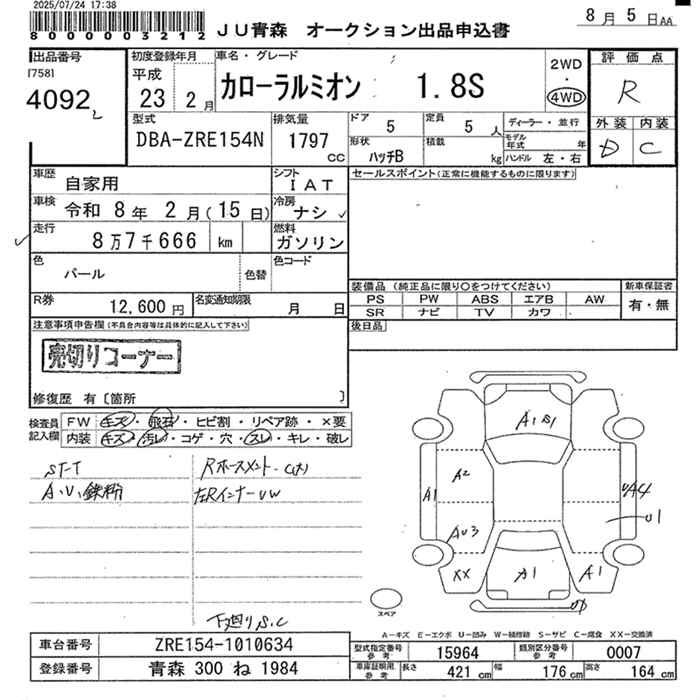 2025/07/24 17:38
8000003212
JU青森 オークション出品申込書
8月5日AA
出品番号
[758]
4092
初度登録年月
平成
23 2月
車名・グレード
カローラルミオン 1.8S
2WD
・
4WD
評価点
R
外装 内装
D C
型式
DBA-ZRE154N
排気量
1797
CC
ドア
5
定員
5人
ディーラー・並行
形状
ハッチB
積載
kg
モデル年式 年
ハンドル 左・右
車歴
自家用
シフト
IAT
車検
令和 8年 2月(15日)
冷房
ナシ
走行
8万7千666 km
燃料
ガソリン
色
パール
色替
色コード
R券
12,600円
名変通知期限
月 日
セールスポイント(正常に機能するものに限ります)
装備品 (純正品に限り○をつけてください)
新車保証書
PS PW ABS エアB AW
有・無
SR ナビ TV カワ
後日品
注意事項申告欄(不具合内容等は具体的に記入して下さい)
売切りコーナー
修復歴 有〔箇所 〕
検査員記入欄
FW キズ・飛石・ヒビ割・リペア跡・×要
内装 キズ・汚レ・コゲ・穴・スレ・キレ・破レ
A.U.
下廻りS.C
A1 S1
A2
A1
AU3
XX
A1
A1
UA4
U1
スペア
A-キズ E-エクボ U-凹み W-補修跡 S-サビ C-腐食 XX-交換済
車台番号
ZRE154-1010634
登録番号
青森 300 ね 1984
型式指定番号
参考
15964
類別区分番号
参考
0007
車庫証明用
参考
長さ 421cm
幅 176cm
高さ 164cm